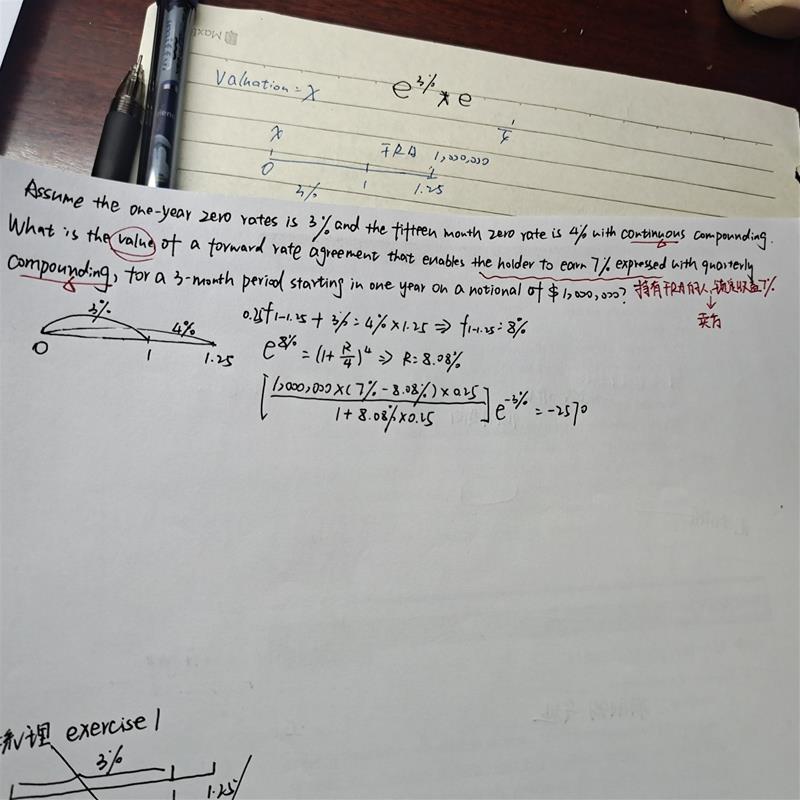 Valuation = X
e^3% * e
1/4
X
FRA 1,000,000
0 1 1.25
3%
Assume the one-year zero rates is 3% and the fifteen month zero rate is 4% with continuous compounding.
What is the value of a forward rate agreement that enables the holder to earn 7% expressed with quarterly
compounding, for a 3-month period starting in one year on a notional of $1,000,000? 持有FRA的人,锁定收益7%
卖方
3% 4%
0 1 1.25
0.25f1-1.25 + 3% = 4% × 1.25 ⇒ f1-1.25 = 8%
e^8% = (1 + R/4)^4 ⇒ R = 8.08%
[1,000,000 × (7% - 8.08%) × 0.25 / 1 + 8.08% × 0.25] e^-3% = -2570
理 exercise 1
3%
1.25